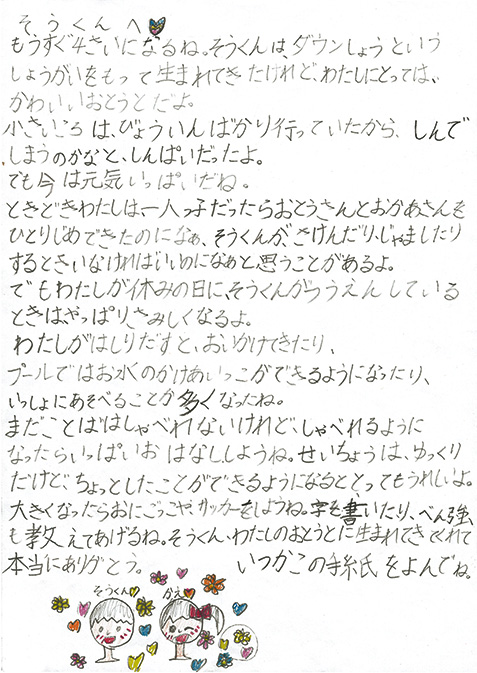 そうくんへ
もうすぐ4さいになるね。そうくんは、ダウンしょうという
しょうがいをもって生まれてきたけれど、わたしにとっては、
かわいいおとうとだよ。
小さいころは、びょういんばかり行っていたから、しんで
しまうのかなと、しんぱいだったよ。
でも今は元気いっぱいだね。
ときどきわたしは、一人っ子だったらおとうさんとおかあさんを
ひとりじめできたのになぁ、そうくんが、さけんだり、じゃましたり
するときいなければいいのになぁと思うことがあるよ。
でもわたしが休みの日に、そうくんがつうえんしている
ときは、やっぱりさみしくなるよ。
わたしがはしりだすと、おいかけてきたり、
プールではお水のかけあいっこができるようになったり、
いっしょにあそべることが多くなったね。
まだことばはしゃべれないけれど、しゃべれるように
なったらいっぱいおはなししようね。せいちょうは、ゆっくり
だけど、ちょっとしたことができるようになるととってもうれしいよ。
大きくなったらおにごっこや、サッカーをしようね。字を書いたり、べん強
も教えてあげるね。そうくん、わたしのおとうとに生まれてきてくれて
本当にありがとう。　いつかこの手紙をよんでね。
そうくん かえ